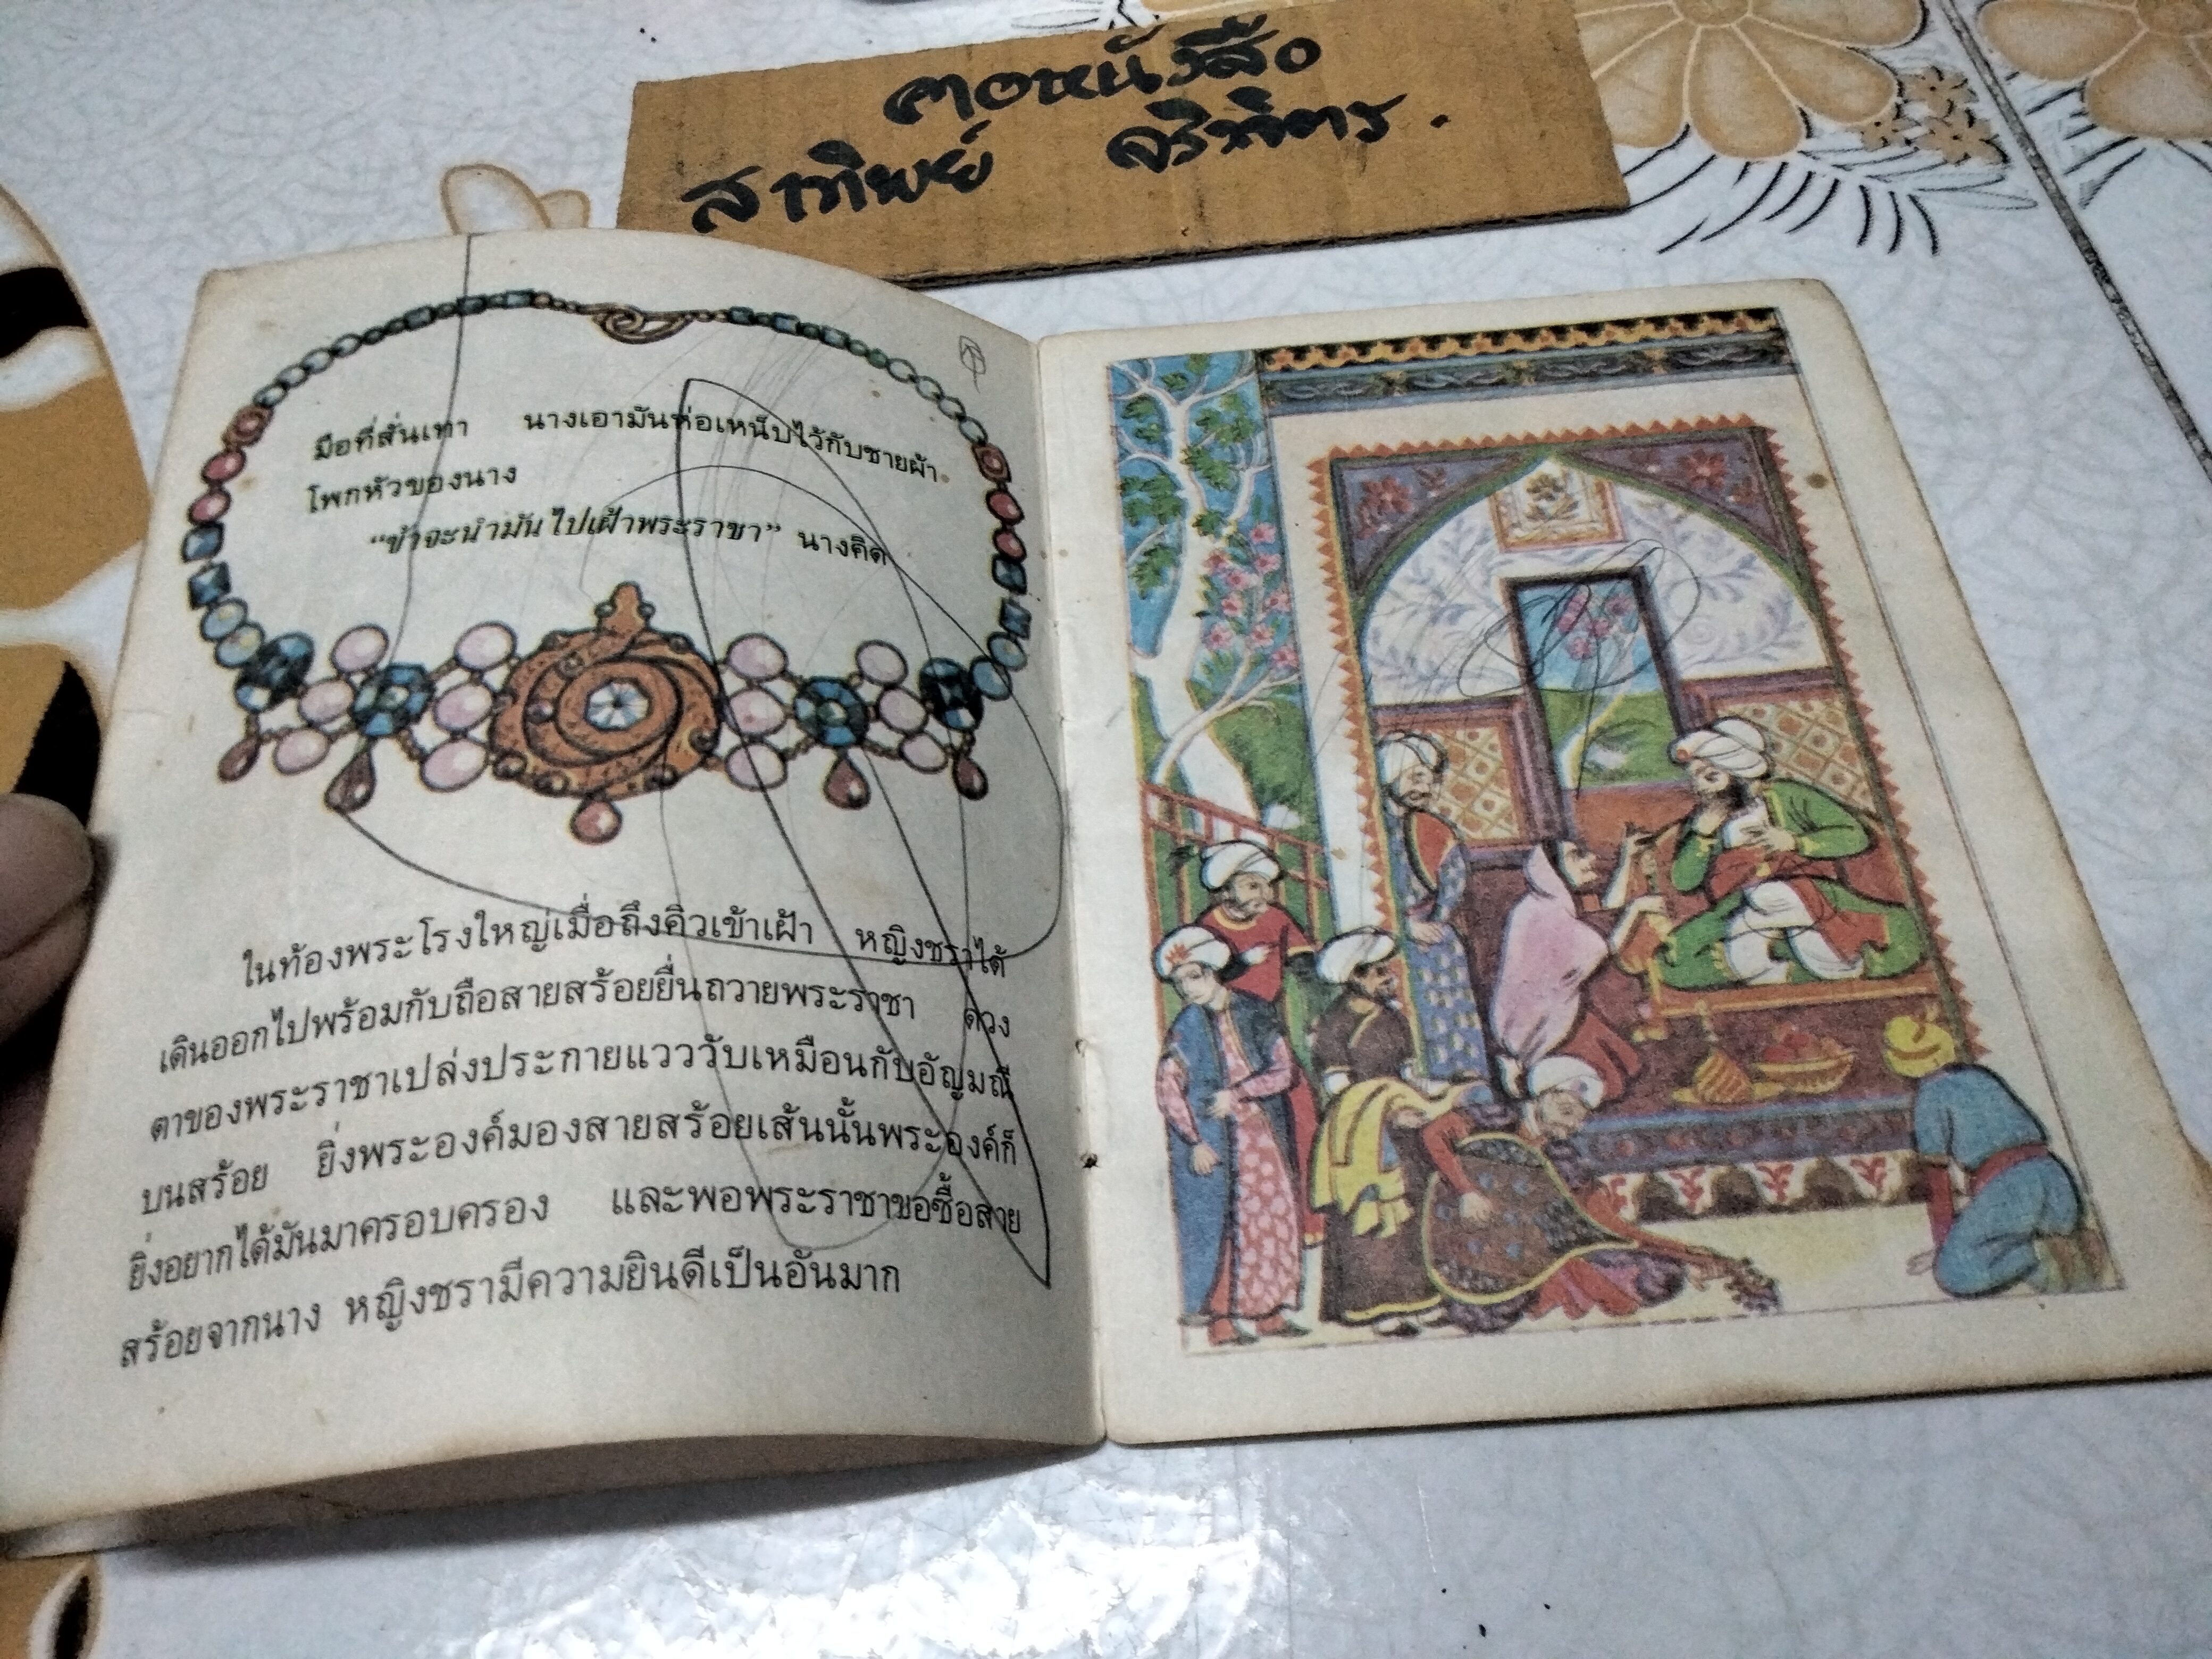 คอหนังสือ
สาทิพย์ จริพิตร.
มือที่สั่นเทา นางเอามันห่อเหน็บไว้กับชายผ้า
โพกหัวของนาง
“ข้าจะนำมันไปเฝ้าพระราชา” นางคิด
ในท้องพระโรงใหญ่เมื่อถึงคิวเข้าเฝ้า หญิงชราได้
เดินออกไปพร้อมกับถือสายสร้อยยื่นถวายพระราชา ดวง
ตาของพระราชาเปล่งประกายแวววับเหมือนกับอัญมณี
บนสร้อย ยิ่งพระองค์มองสายสร้อยเส้นนั้นพระองค์ก็
ยิ่งอยากได้มันมาครอบครอง และพอพระราชาขอซื้อสาย
สร้อยจากนาง หญิงชรามีความยินดีเป็นอันมาก